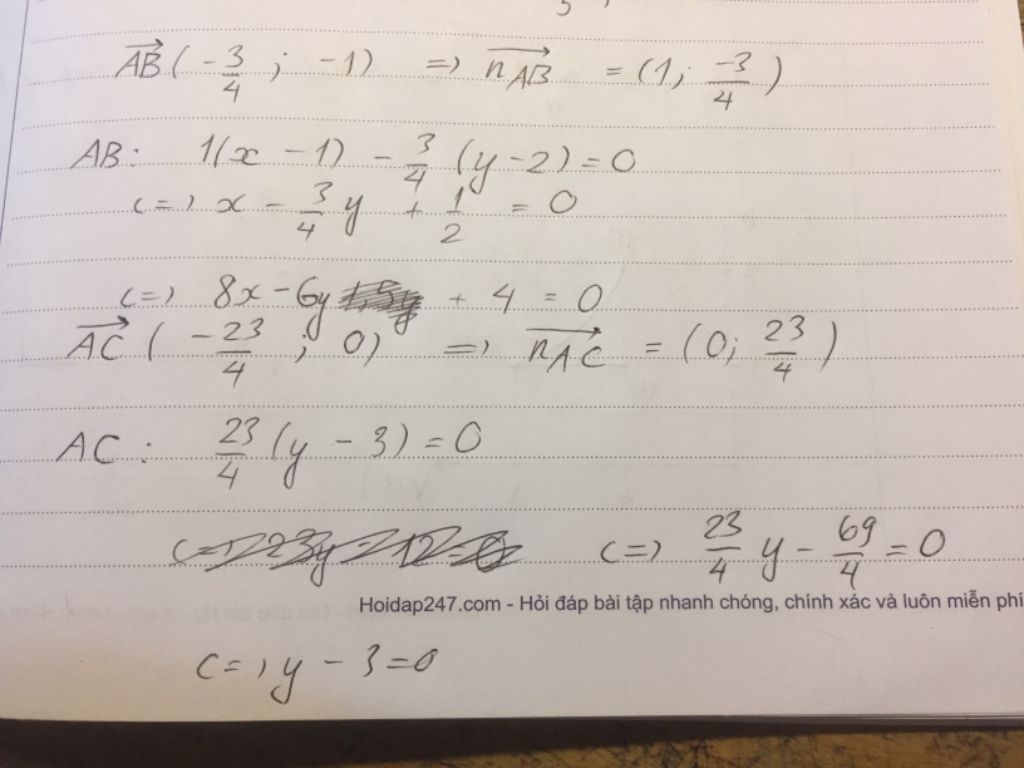 AB→ ( -3/4 ; -1) => n_AB→ = (1; -3/4)
AB: 1(x - 1) - 3/4 (y - 2) = 0
<=> x - 3/4 y + 1/2 = 0
<=> 8x - 6y + 4 = 0
AC→ ( -23/4 ; 0) => n_AC→ = (0; 23/4)
AC: 23/4 (y - 3) = 0
<=> 23y - 12 = 0 <=> 23/4 y - 69/4 = 0
Hoidap247.com - Hỏi đáp bài tập nhanh chóng, chính xác và luôn miễn phí
<=> y - 3 = 0